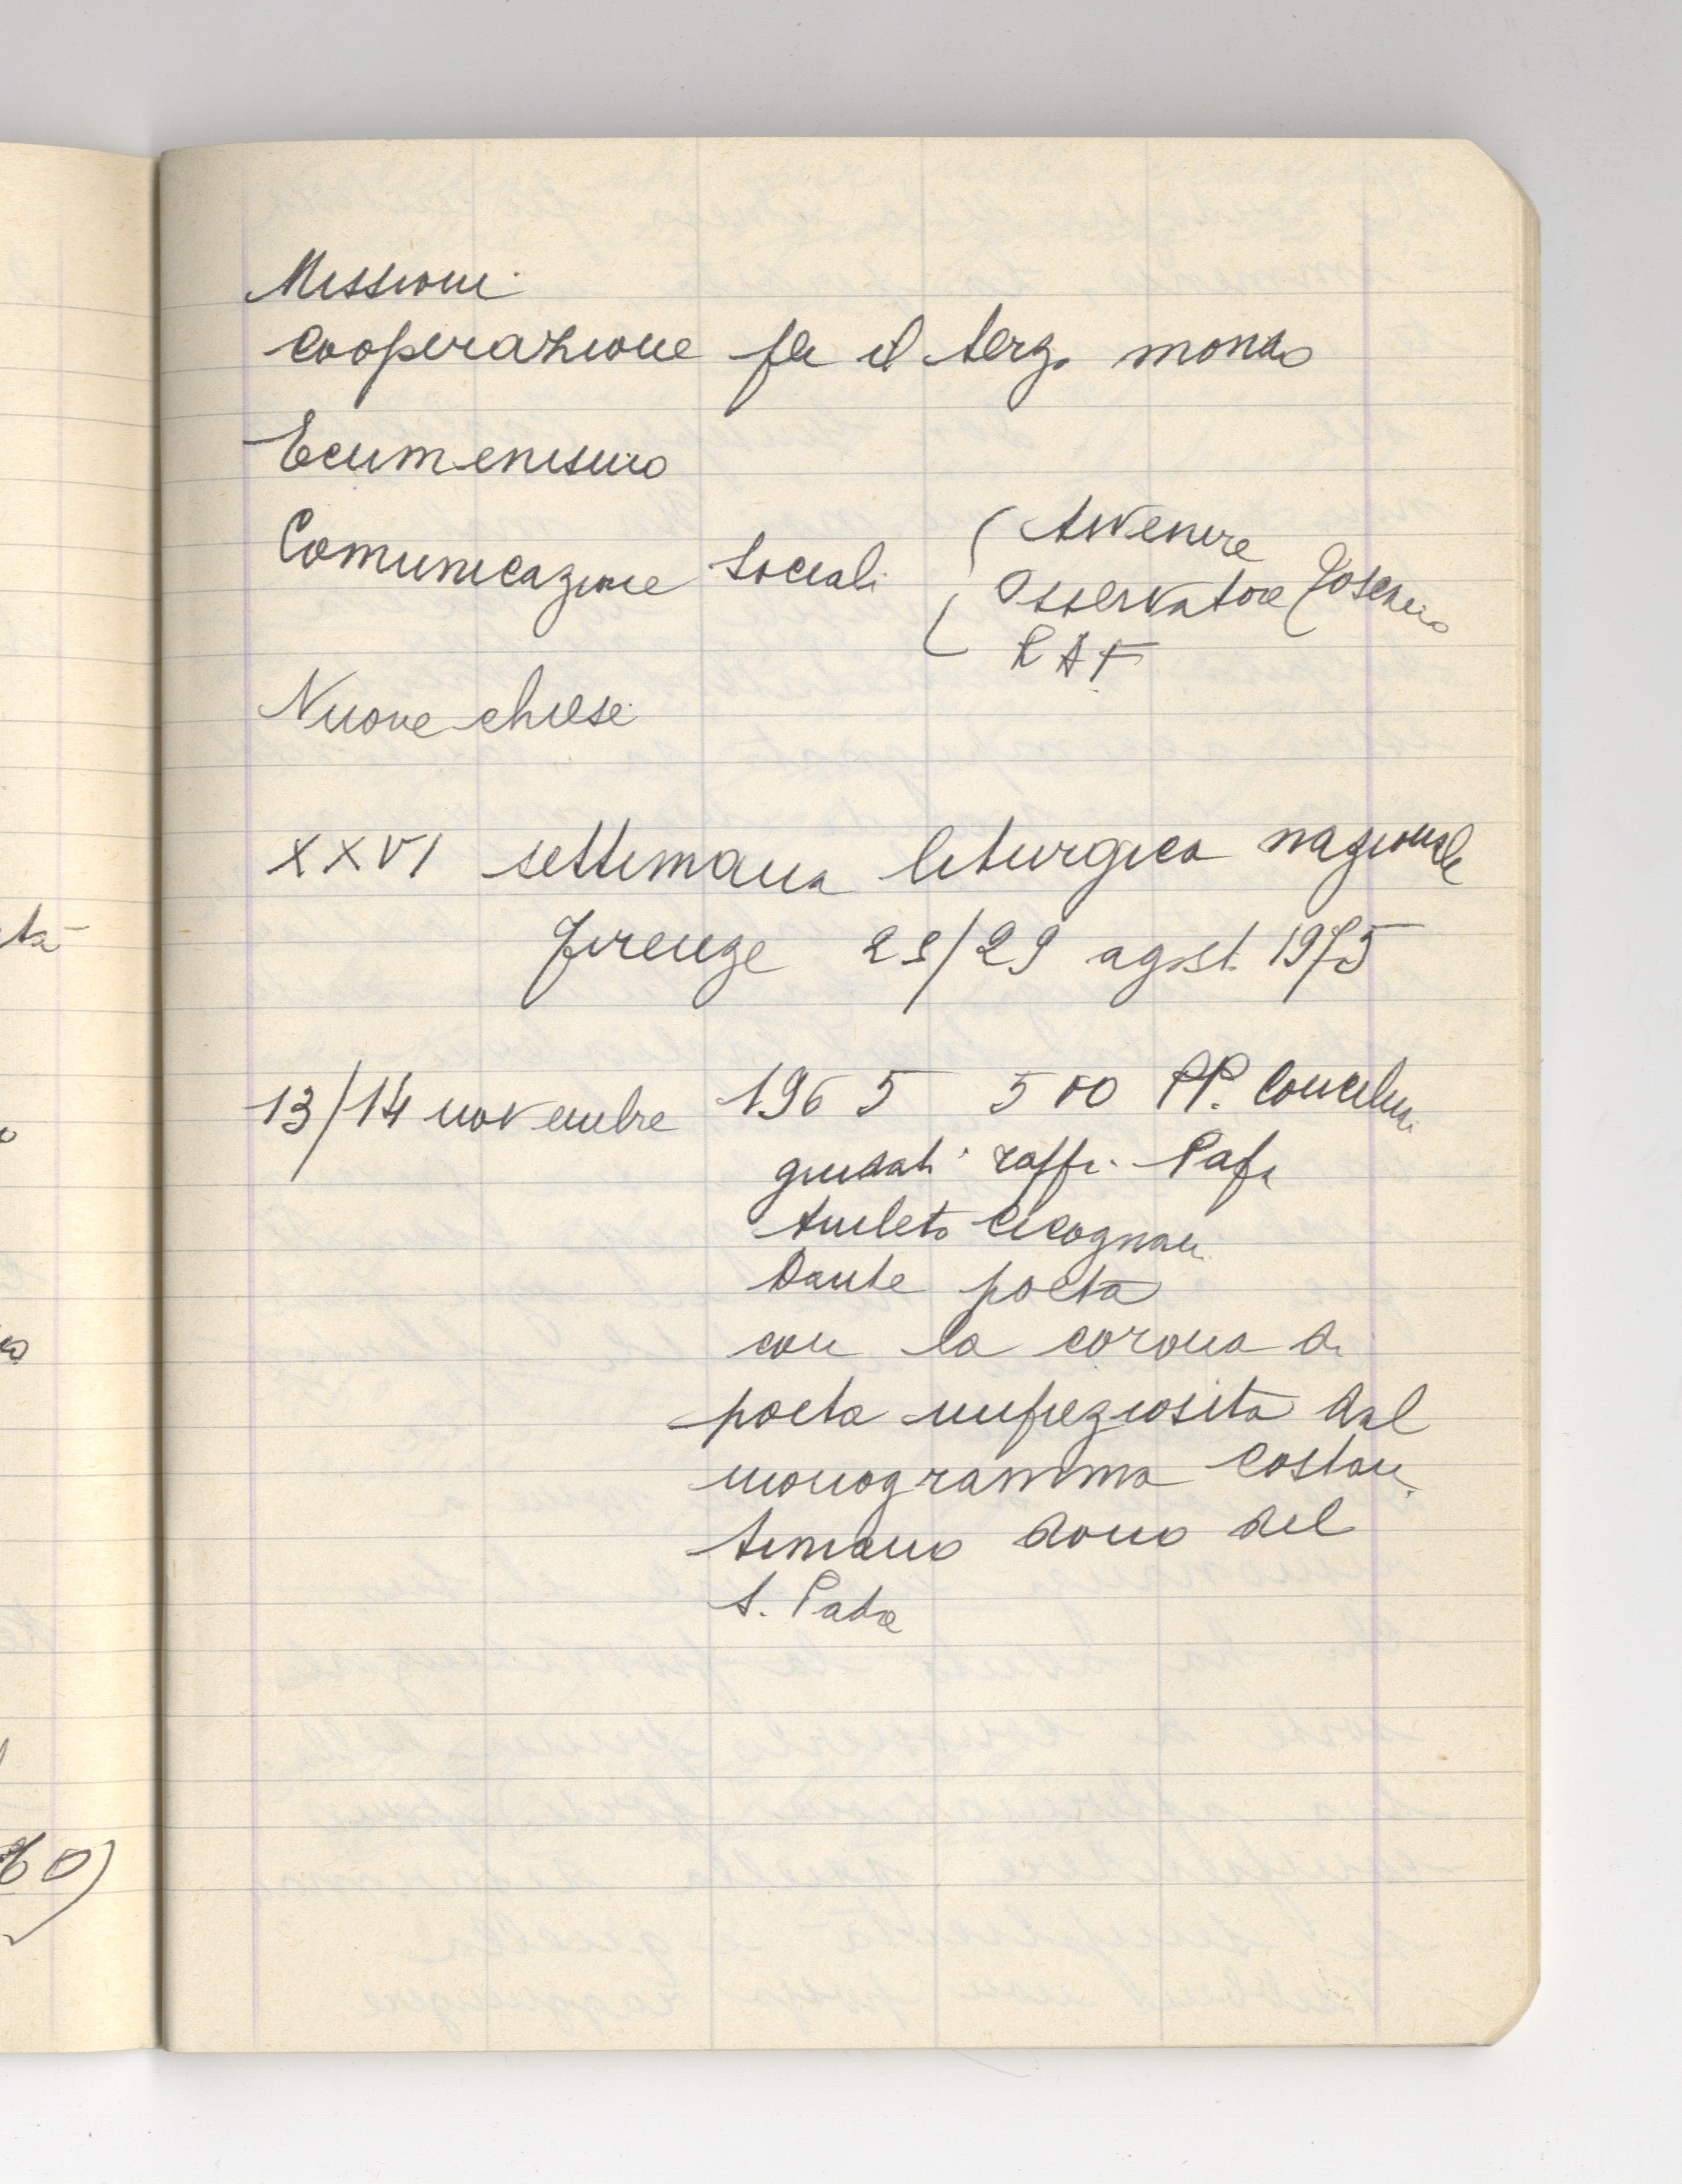 Missioni
Cooperazione per il terzo mondo
Ecumenismo
Comunicazione Sociali
( Avvenire
Osservatore Toscano
RAF
Nuove chiese
XXVI settimana liturgica nazionale
Firenze 25/29 agost. 1975
13/14 novembre 1965 500 PP. Conciliari
guidati rappr. Papa
Amleto Cicognani
Dante poeta
con la corona di
poeta impreziosita dal
monogramma Costan
tiniano dono del
S. Padre
tà
60)